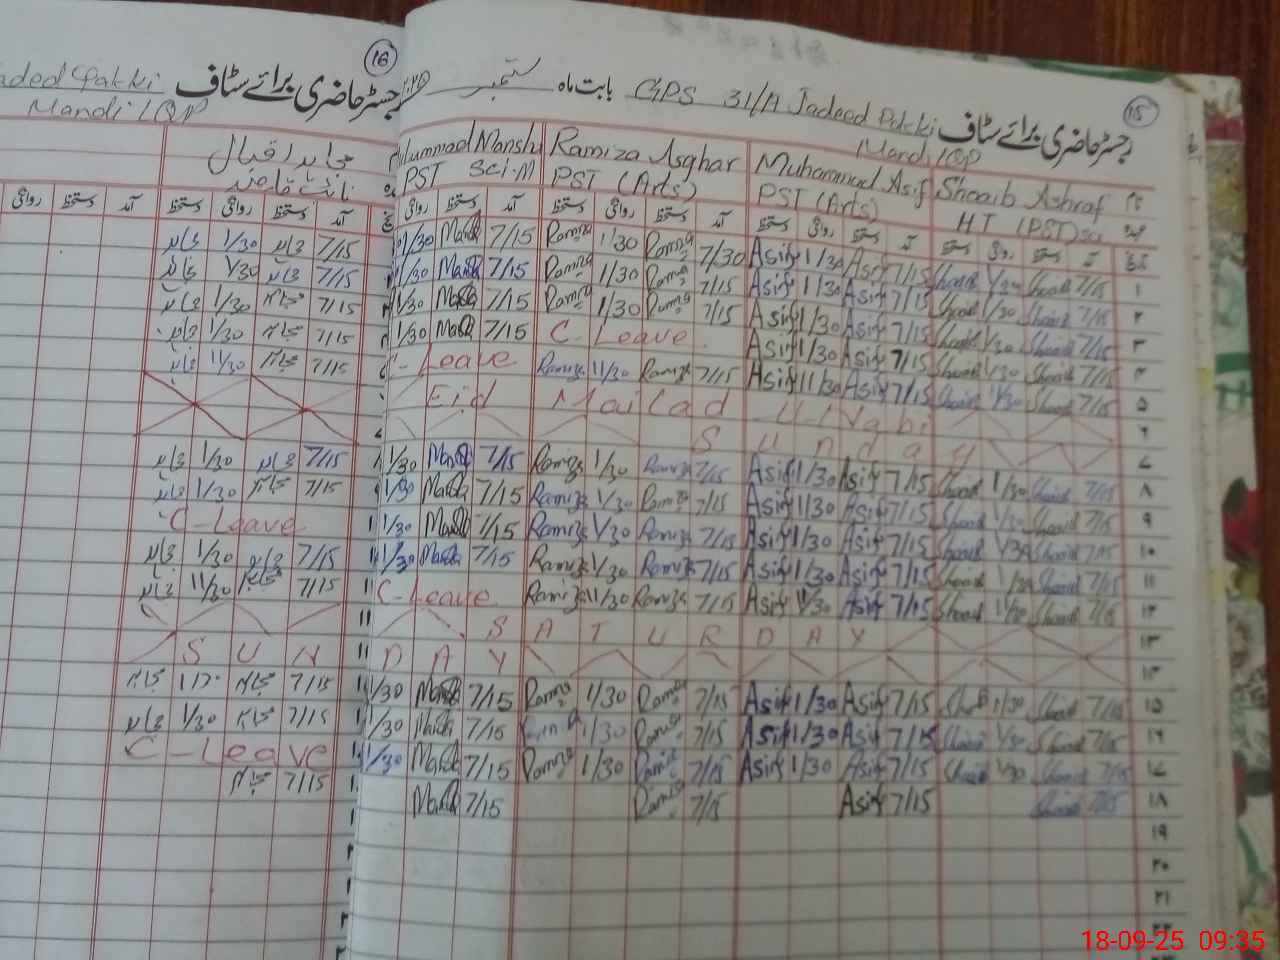 16
رجسٹر حاضری برائے سٹاف
Mandi / QP
مجاہد اقبال
نائب قاصد
آمد دستخط روانگی دستخط آمد دستخط روانگی
15
رجسٹر حاضری برائے سٹاف GPS 31/A Jadeed Pakki بابت ماہ ستمبر
Mandi / QP
Shoaib Ashraf Muhammad Asif Ramiza Asghar
HT (PST) Sci PST (Arts) PST (Arts) PST Sci-M
تاریخ آمد دستخط روانگی دستخط آمد دستخط روانگی دستخط آمد دستخط روانگی دستخط آمد دستخط روانگی
۱ 7/15 Shoaib 1/30 Shoaib 7/15 Asif 1/30 Asif 7/30 Ramiza 1/30 Ramiza 7/15 1/30 7/15 1/30
۲ 7/15 Shoaib 1/30 Shoaib 7/15 Asif 1/30 Asif 7/15 Ramiza 1/30 Ramiza 7/15 1/30 7/15 1/30
۳ 7/15 Shoaib 1/30 Shoaib 7/15 Asif 1/30 Asif 7/15 Ramiza 1/30 Ramiza 7/15 1/30 7/15 1/30
۴ 7/15 Shoaib 1/30 Shoaib 7/15 Asif 1/30 Asif C-Leave 7/15 1/30 7/15 1/30
۵ 7/15 Shoaib 11/30 Shoaib 7/15 Asif 11/30 Asif 7/15 Ramiza 11/30 Ramiza C-Leave 7/15 11/30
۶ Eid Mailad U Nabi
۷ Sunday
۸ 7/15 Shoaib 1/30 Shoaib 7/15 Asif 1/30 Asif 7/15 Ramiza 1/30 Ramiza 7/15 1/30 7/15 1/30
۹ 7/15 Shoaib 1/30 Shoaib 7/15 Asif 1/30 Asif 7/15 Ramiza 1/30 Ramiza 7/15 1/30 7/15 1/30
۱۰ 7/15 Shoaib 1/30 Shoaib 7/15 Asif 1/30 Asif 7/15 Ramiza 1/30 Ramiza 7/15 1/30 C-Leave
۱۱ 7/15 Shoaib 1/30 Shoaib 7/15 Asif 1/30 Asif 7/15 Ramiza 1/30 Ramiza 7/15 1/30 7/15 1/30
۱۲ 7/15 Shoaib 11/30 Shoaib 7/15 Asif 11/30 Asif 7/15 Ramiza 11/30 Ramiza C-Leave 7/15 11/30
۱۳ SATURDAY
۱۴ SUNDAY
۱۵ 7/15 Shoaib 1/30 Shoaib 7/15 Asif 1/30 Asif 7/15 Ramiza 1/30 Ramiza 7/15 1/30 7/15
۱۶ 7/15 Shoaib 1/30 Shoaib 7/15 Asif 1/30 Asif 7/15 Ramiza 1/30 7/15 1/30 7/15 1/30
۱۷ 7/15 Shoaib 1/30 Shoaib 7/15 Asif 1/30 Asif 7/15 Ramiza 1/30 Ramiza 7/15 1/30 C-Leave
۱۸ 7/15 Shoaib 7/15 Asif 7/15 Ramiza 7/15 7/15
۱۹
۲۰
۲۱
۲۲
18-09-25 09:35